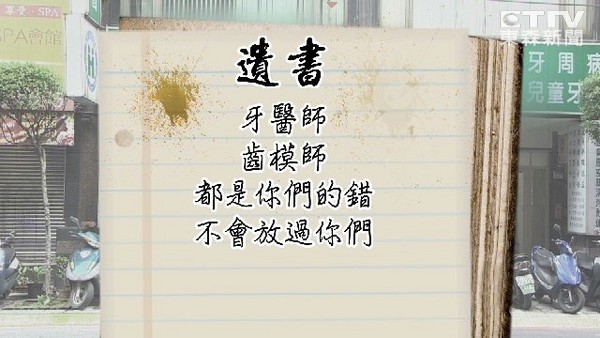 尊愛·SPA
SPA會館
CTTV
東森新聞
遺書
牙醫師
齒模師
都是你們的錯
不會放過你們
牙周病
兒童牙